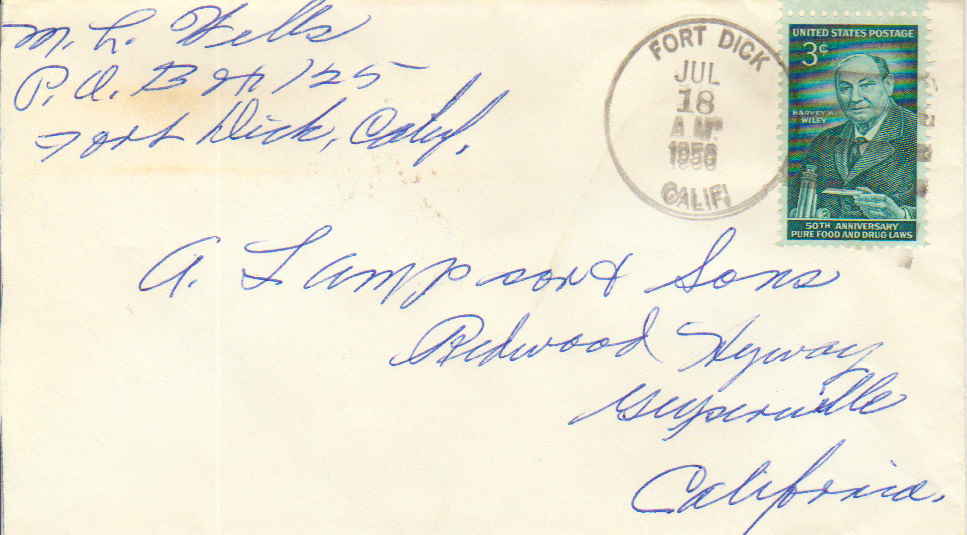 M. L. Wells
P. O. Box 125
Fort Dick, Calif.
FORT DICK
JUL
18
A M
1956
CALIF
UNITED STATES POSTAGE
3¢
HARVEY W.
WILEY
50TH ANNIVERSARY
PURE FOOD AND DRUG LAWS
A. Lampson & Sons
Redwood Hyway
Geyserville
California.